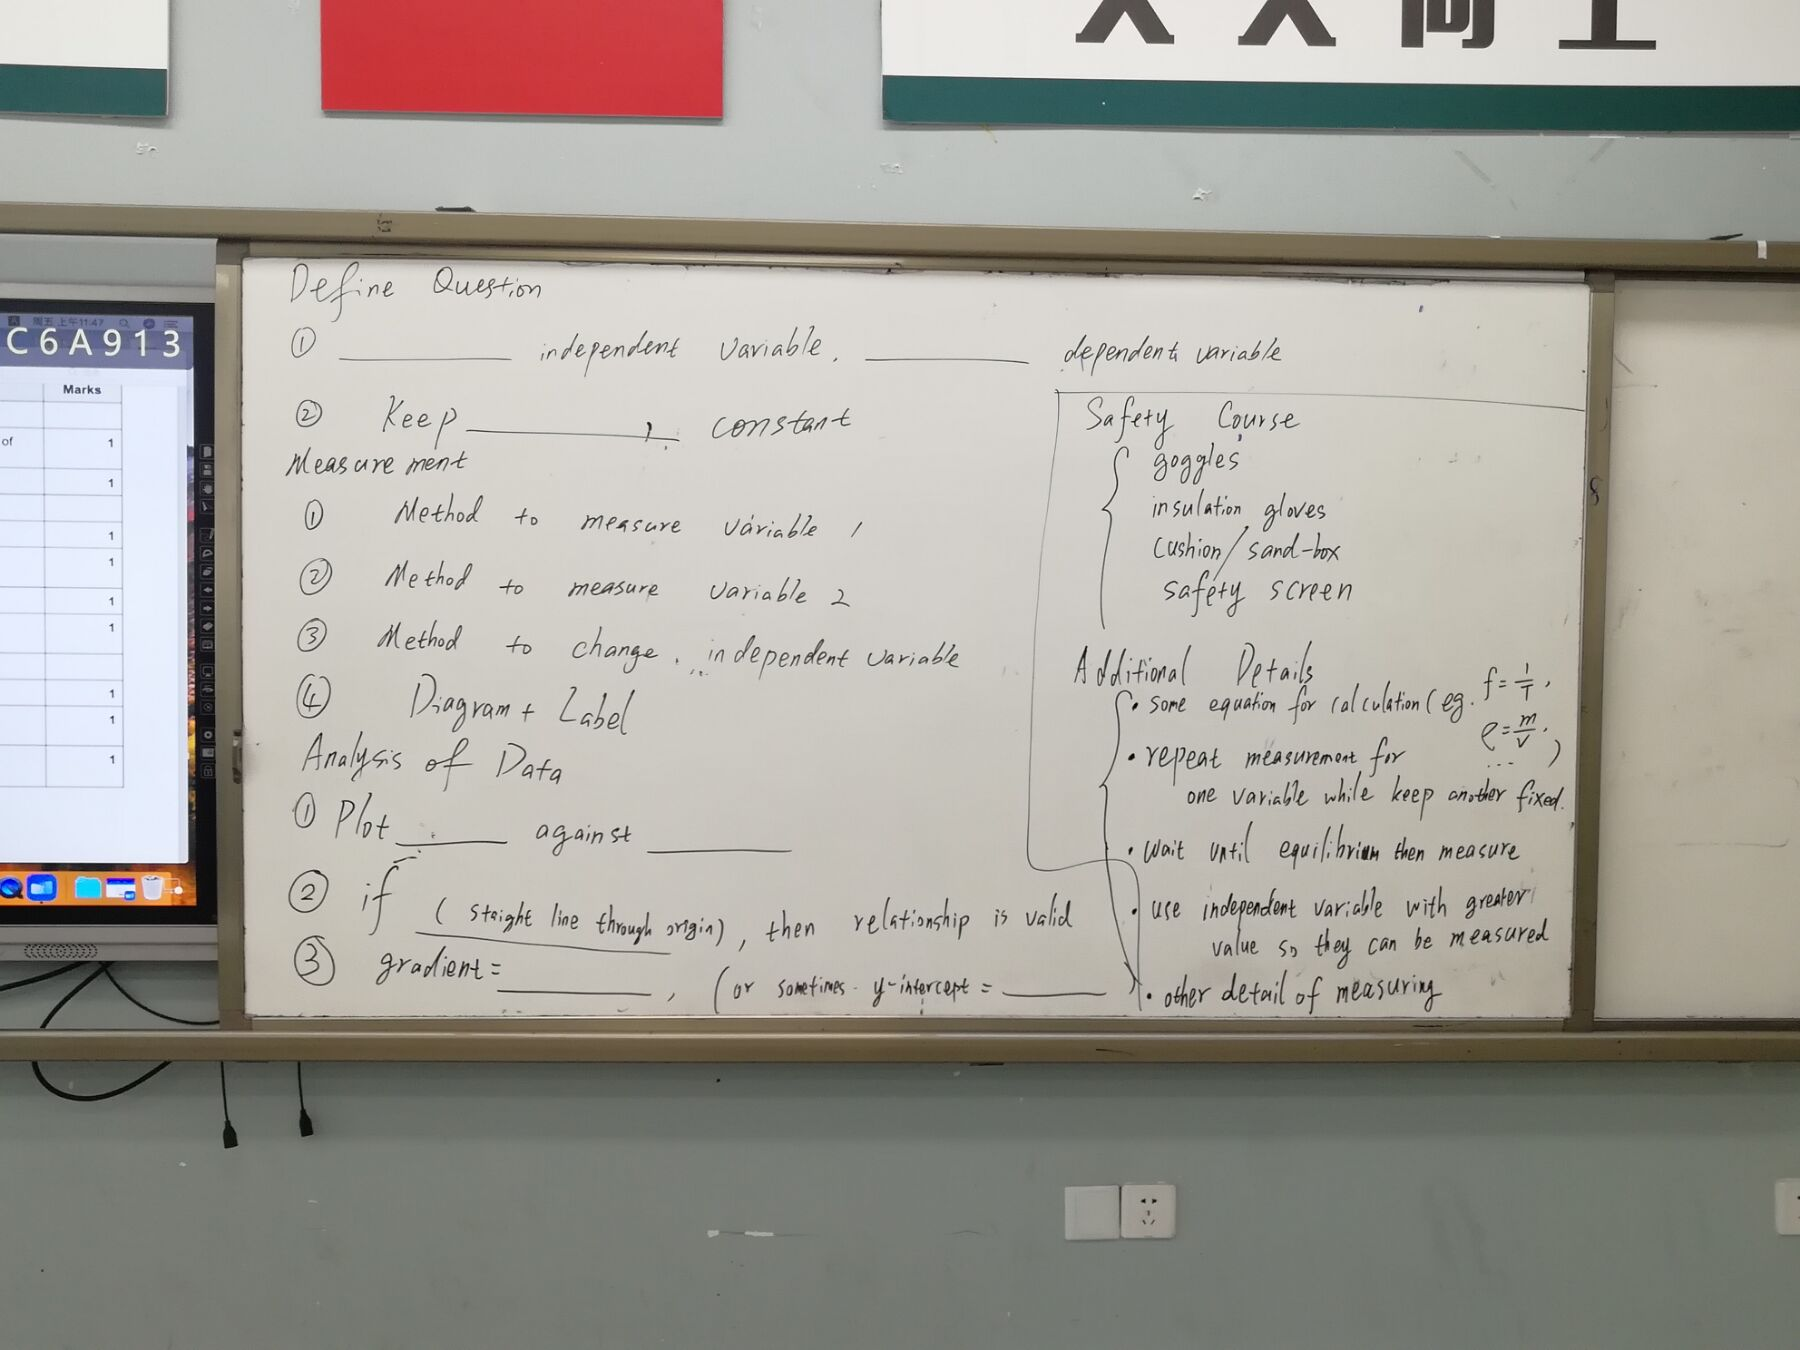 天天向上
周五上午11:47
C6A913
Marks
of
1
1
1
1
1
1
1
1
1
Define Question
① ________ independent variable, ________ dependent variable
② Keep ________, constant
Measurement
① Method to measure variable 1
② Method to measure variable 2
③ Method to change independent variable
④ Diagram + Label
Analysis of Data
① Plot ________ against ________
② if (staight line through origin), then relationship is valid
③ gradient = ________, (or sometimes y-intercept = ________)
Safety Course
goggles
insulation gloves
cushion/sand-box
safety screen
Additional Details
• some equation for calculation (eg. f=1/T,
ρ=m/V,
...)
• repeat measurement for
one variable while keep another fixed.
• wait until equilibrium then measure
• use independent variable with greater
value so they can be measured
• other detail of measuring